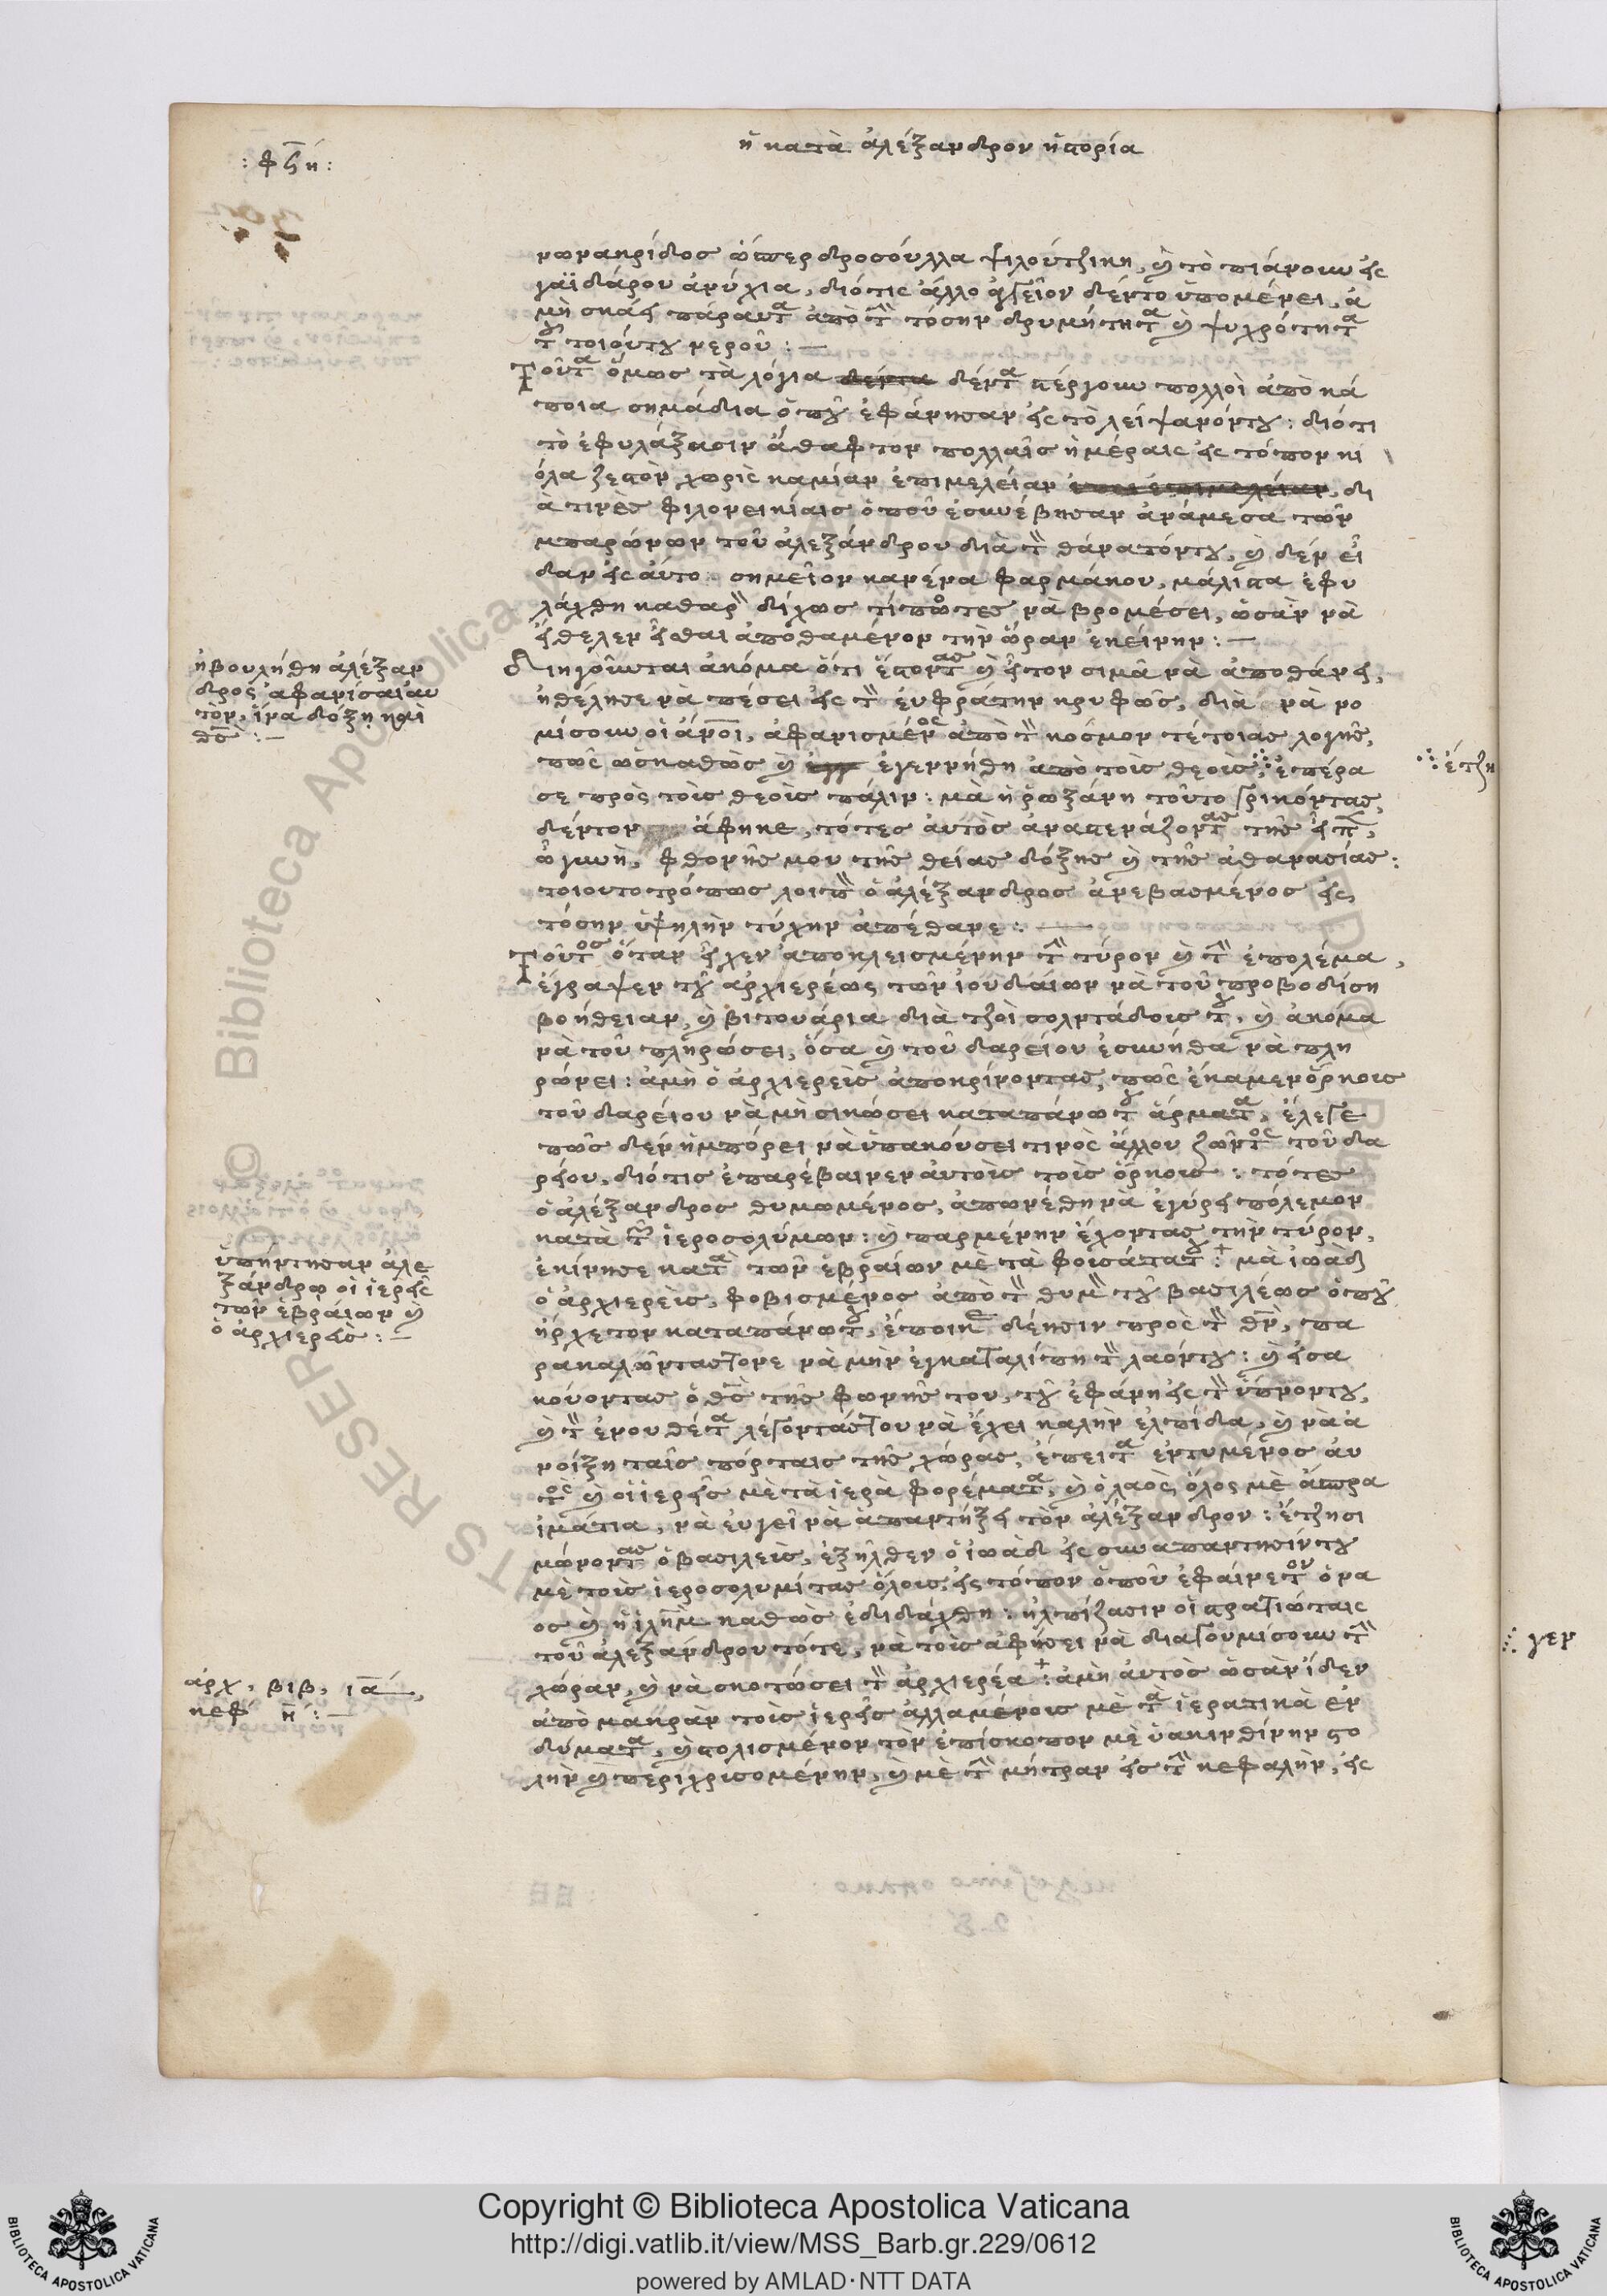 : φϟη :
ἡ κατὰ ἀλέξανδρον ἡστορία
νωνακρίδος ὡσπερ δροσούλλα ψιλούτζικη, καὶ τὸ πιάνουν εἰς
γαϊδάρου ἀνύχια, διότις ἄλλο ἀγγεῖον δέντο ὑπομένει, ἀ
μὴ σκάει πάραυτα ἀπὸ τὴν τόσην δρυμήτητα καὶ ψυχρότητα
τοῦ τοιούτου νεροῦ : —
Τοῦτα ὅμως τὰ λόγια δέντα στέργουν πολλοὶ ἀπὸ κά
ποια σημάδια ὁποῦ ἐφάνησαν εἰς τὸ λείψανόντου : διότι
τὸ ἐφυλάξασιν ἄθαφτον πολλαῖς ἡμέραις εἰς τόπον κι
όλα ζεστὸν χωρὶς καμίαν ἐπιμελείαν, δι
ὰ τινὲς φιλονεικίαις ὁποῦ ἐσυνέβησαν ἀνάμεσα τῶν
μπαρώνων τοῦ ἀλεξάνδρου διὰ τὸν θάνατόντου, καὶ δὲν εἶ
δαν εἰς αὐτο σημεῖον κανένα φαρμάκου, μάλιστα ἐφυ
λάχθη καθαρὸν δίχως τίποτες νὰ βρομέσει, ὡσὰν νὰ
εἴθελεν εἶσθαι ἀποθαμένον τὴν ὥραν ἐκείνην : —
Διηγοῦνται ἀκόμα ὅτι ἔστοντας καὶ εἶτον σιμᾶ νὰ ἀποθάνει,
ἠθέλησε νὰ πέσει εἰς τὸν ἐυφράτην κρυφῶς, διὰ νὰ νο
μίσουν οἱ ἄνοι, ἀφανισμένος ἀπὸ τὸν κόσμον τέτοιας λογῆς,
πῶς ὡσκαθὼς καὶ ἐγεννήθη ἀπὸ τοὶς θεοὶς, ἐπέρα
σε πρὸς τοὶς θεοὶς πάλιν : μὰ ἡ ῥωξάνη τοῦτο γρικόντας,
δέντον ἀφηκε, τότες ἀυτὸς ἀναστενάζοντας τῆς εἶπε,
ὦ γυνὴ, φθονῆς μου τῆς θείας δόξης καὶ τῆς ἀθανασίας :
τοιουτοτρόπως λοιπὸν ὁ ἀλέξανδρος ἀνεβασμένος εἰς
τόσην ὑψηλὴν τύχην ἀπέθανε : —
Τοῦτος ὅταν εἶχεν ἀποκλεισμένην τὴν τύρον καὶ τὴν ἐπολέμα,
ἔγραψεν τοῦ ἀρχιερέως τῶν ἰουδαίων νὰ τοῦ προβοδίση
βοήθειαν, καὶ βιτουάρια διὰ τζοὶ σολντάδοις του, καὶ ἀκόμα
νὰ τοῦ πληρώσει, ὅσα καὶ του δαρείου ἐσυνήθα νὰ πλη
ρώνει : ἀμὴ ὁ ἀρχιερεὶς ἀποκρίνοντας, πῶς ἔκαμεν ὅρκοις
τοῦ δαρείου νὰ μὴ σικώσει καταπάνω του ἄρματα, ἔλεγε
πῶς δὲν ἡμπόρει νὰ ὑπακούσει τινὸς ἄλλου ζῶντος τοῦ δα
ρείου, διότις ἐπαρέβαινεν ἀυτοὶς τοὶς ὅρκοις : τότες
ὁ ἀλέξανδρος θυμωμένος, ἀπωνέθη νὰ ἐγύρει πόλεμον
κατὰ τῶν ἱεροσολύμων : καὶ παρμένην ἔχοντας τὴν τύρον,
ἐκίνησε κατὰ τῶν ἑβραίων μὲ τὰ φοισάτατου : μὰ ἰωὰδ
ὁ ἀρχιερεὶς, φοβισμένος ἀπὸ τὸν θυμὸν τοῦ βασιλέως ὁποῦ
ἤρχετον καταπάνωτου, ἔποιησε δέησιν πρὸς τὸν θν, πα
ρακαλῶντας τονε νὰ μὴν ἐγκαταλίπη τὸν λαόντου : καὶ εἰσα
κούοντας ὁ θς τῆς φωνῆς του, τοῦ ἐφάνη εἰς τὸν ὕπνοντου,
καὶ τὸν ἐνουθέτα λέγοντάς του νὰ ἔχει καλὴν ἐλπίδα, καὶ νὰ ἀ
νοίξη ταῖς πόρταις τῆς χώρας, ἔπειτα ἐντυμένος ἀυ
τὸς καὶ οἱ ἱερεῖς μὲ τὰ ἱερὰ φορέματα, καὶ ὁ λαὸς ὅλος μὲ ἄσπρα
ἱμάτια, νὰ ἐυγεῖ νὰ ἀπαντήξει τὸν ἀλέξανδρον : ἔτζη σι
μώνοντας ὁ βασιλεὶς, ἐξῆλθεν ὁ ἰωὰδ εἰς συναπαντησίντου
μὲ τοὶς ἱεροσολυμίτας ὅλοις, εἰς τόπον ὁποῦ ἐφαίνετον ὁ να
ος καὶ ἡ ιλημ καθὼς ἐδιδάχθη : ἠλπίζασιν οἱ στρατιώταις
τοῦ ἀλεξάνδρου τότε, νὰ τοὶς ἀφήσει νὰ διαγουμίσουν τὴν
χώραν, καὶ νὰ σκοτώσει τὸν ἀρχιερέα : ἀμὴ ἀυτὸς ὡσὰν ἴδεν
ἀπὸ μακρὰν τοὶς ἱερεῖς ἀλλαμένοις μὲ τὰ ἱερατικὰ ἐν
δύματα, καὶ στολισμένον τὸν ἐπίσκοπον μὲ ὑακινθίνην στο
λὴν καὶ περιχρισομένην, καὶ μὲ τὴν μήτραν εἰς τὴν κεφαλὴν, εἰς
ἠβουλήθη ἀλέξαν
δρος ἀφανίσαι ἀυ
τὸν, ἵνα δόξῃ
θς : —
ἔτζη
ὑπήντησαν ἀλε
ξάνδρῳ οἱ ἱερεῖς
τῶν ἑβραίων καὶ
ὁ ἀρχιερεὺς : —
γεν
ἀρχ, βιβ, ια,
κεφ η : —
Copyright © Biblioteca Apostolica Vaticana
http://digi.vatlib.it/view/MSS_Barb.gr.229/0612
powered by AMLAD·NTT DATA
BIBLIOTECA APOSTOLICA VATICANA
BIBLIOTECA APOSTOLICA VATICANA